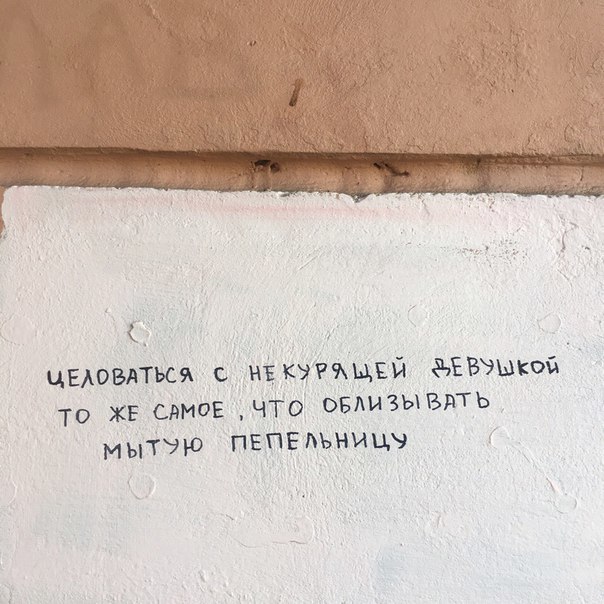 ЦЕЛОВАТЬСЯ С НЕКУРЯЩЕЙ ДЕВУШКОЙ
ТО ЖЕ САМОЕ, ЧТО ОБЛИЗЫВАТЬ
МЫТУЮ ПЕПЕЛЬНИЦУ